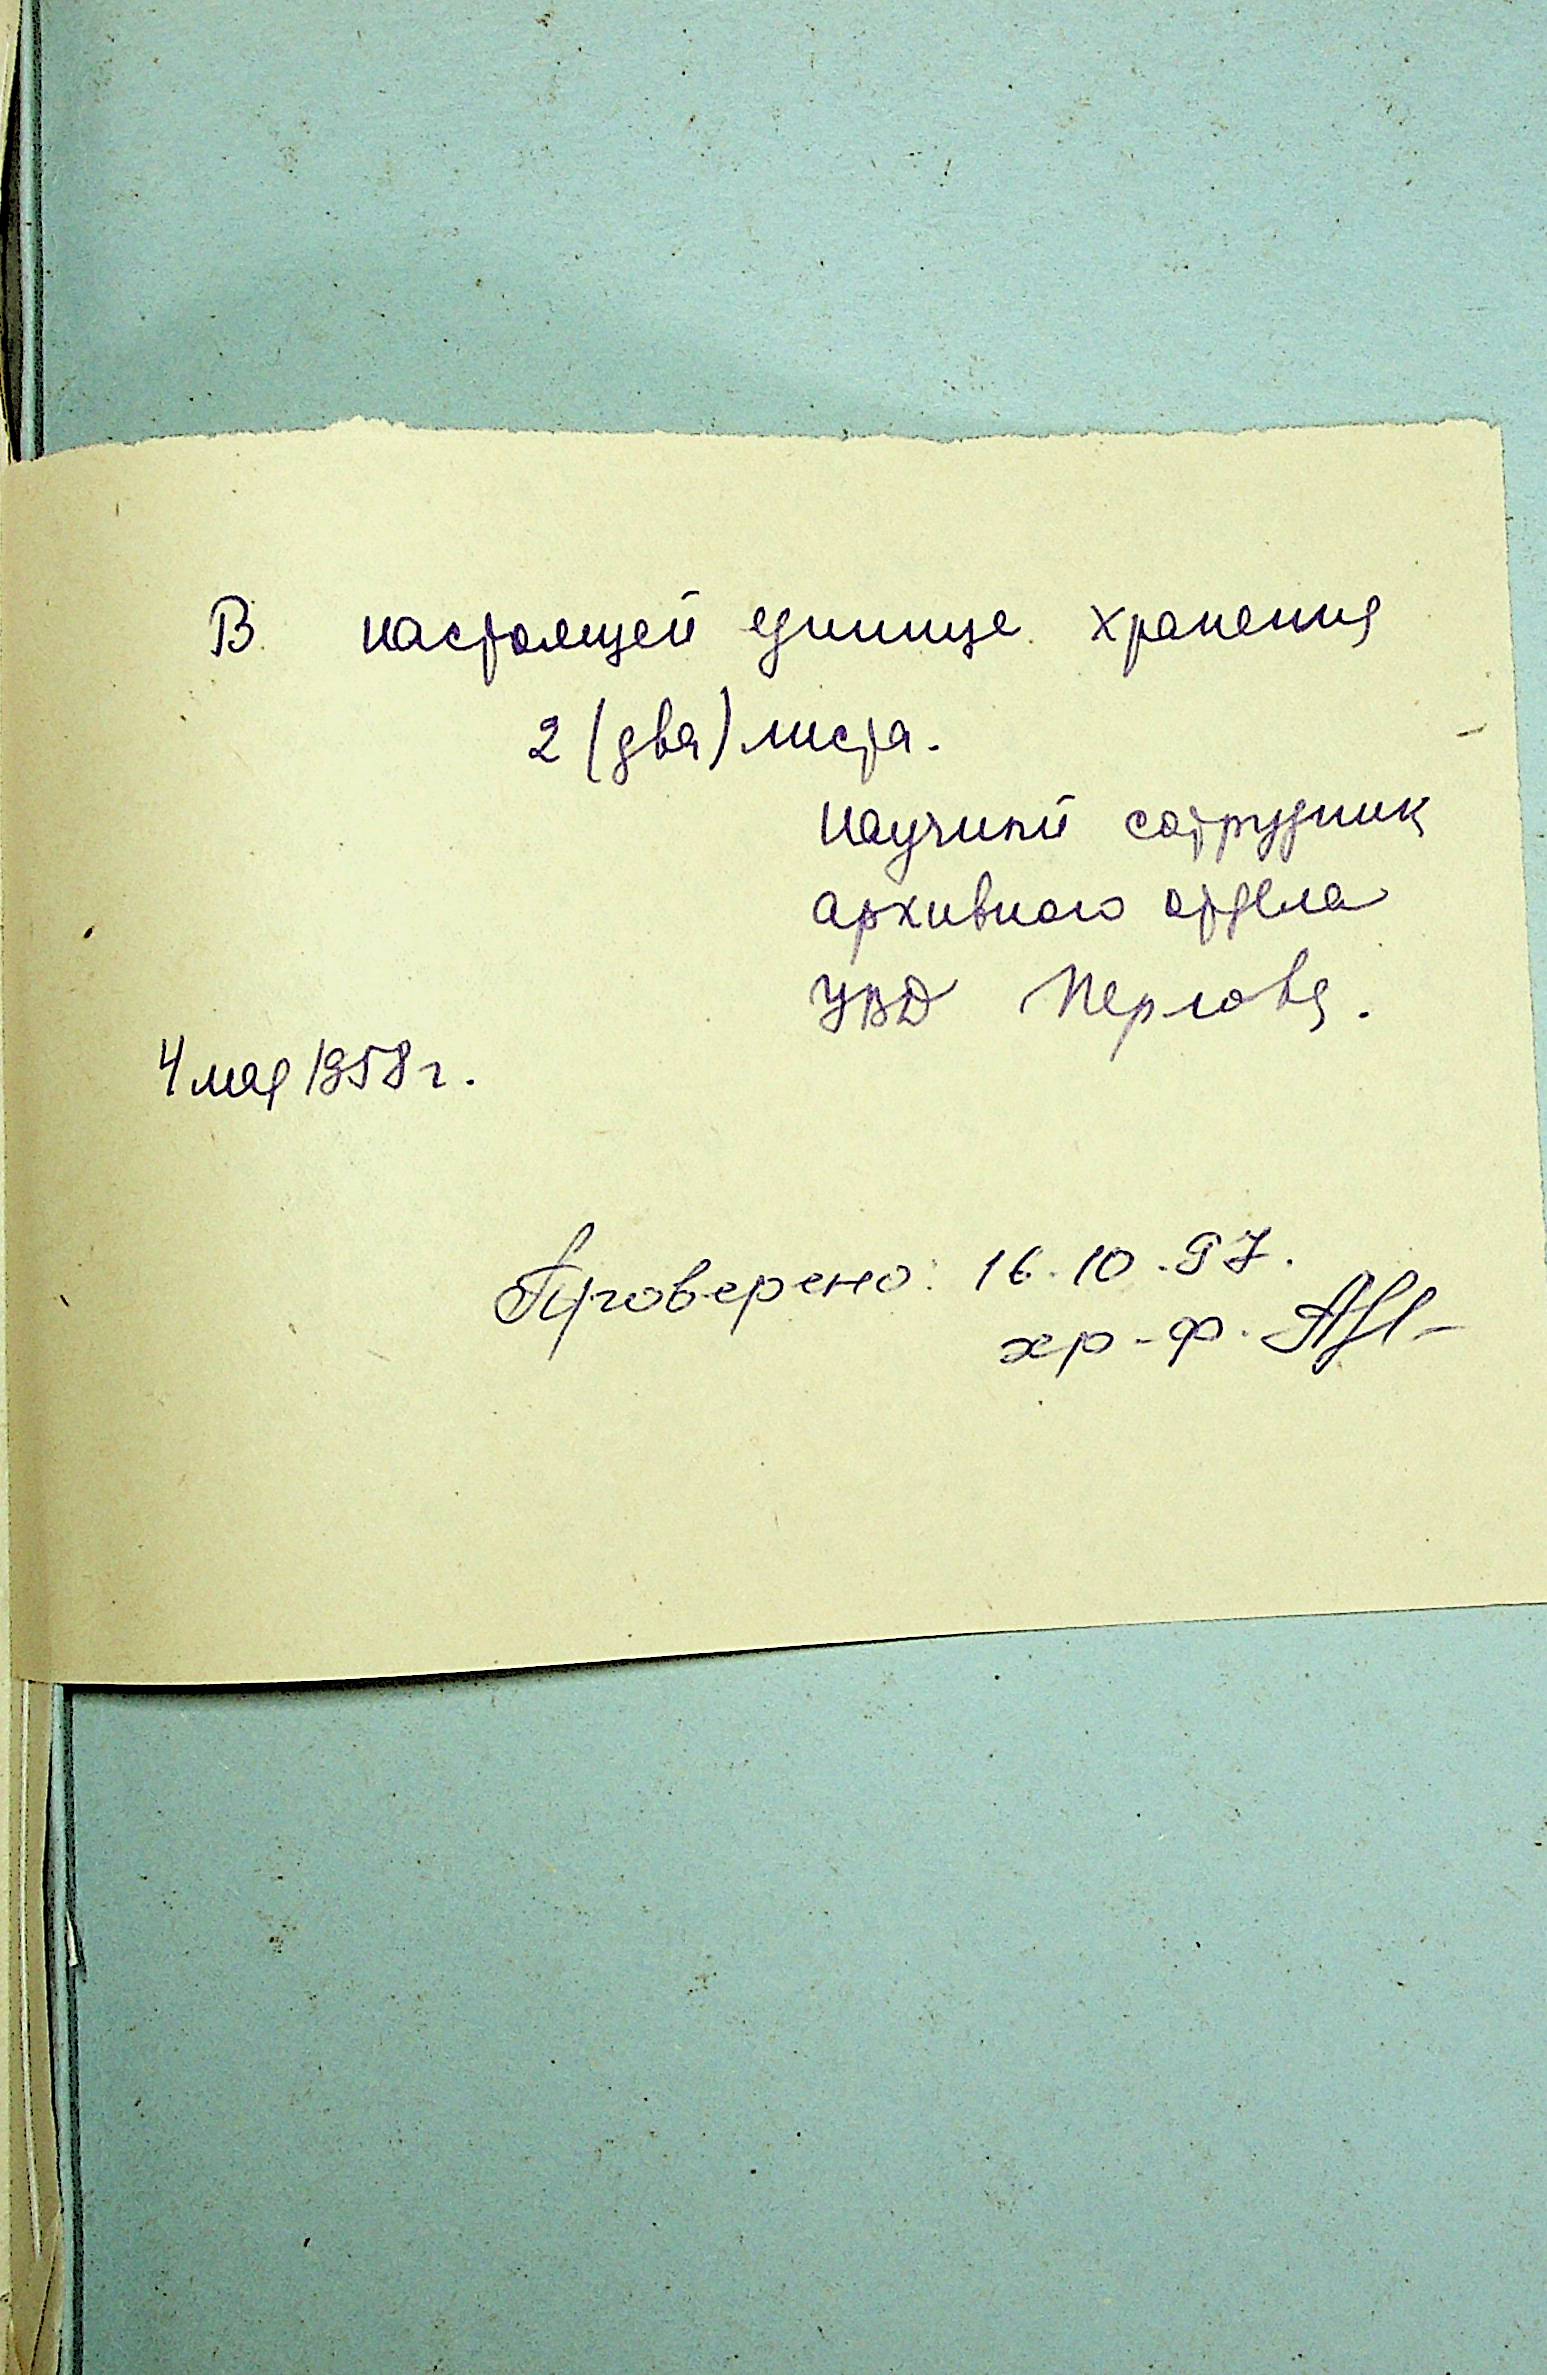 В настоящей единице хранения
2 (два) листа.
Научный сотрудник
архивного отдела
УВД Перлова.
4 мая 1958 г.
Проверено: 16.10.97.
хр-ф.